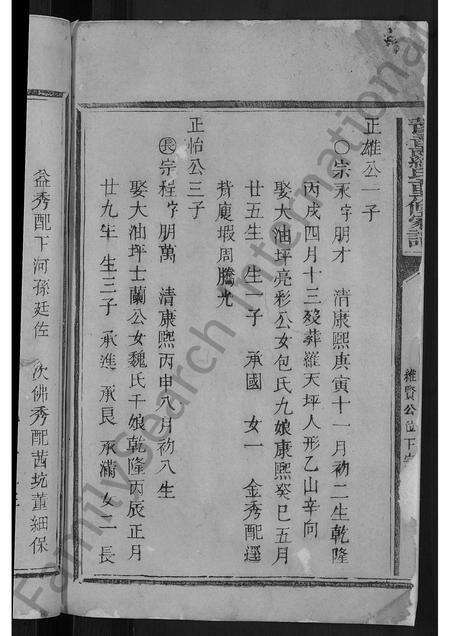 正雄公一子
〇宗永字朋才 清康熙庚寅十一月初二生乾隆
丙戌四月十三殁葬羅天坪人形乙山辛向
娶大油坪亮彩公女包氏九娘康熙癸巳五月
廿五生 生一子 承國 女一 金秀配逕
背廈嘏周騰光
正怡公三子
長宗程字朋萬 清康熙丙申八月初八生
娶大油坪士蘭公女魏氏千娘乾隆丙辰正月
廿九年 生三子 承進 承良 承滿 女二 長
益秀配下河孫廷佐 次佛秀配茜坑董細保
氏重修家譜
維賢公位下
FamilySearch International